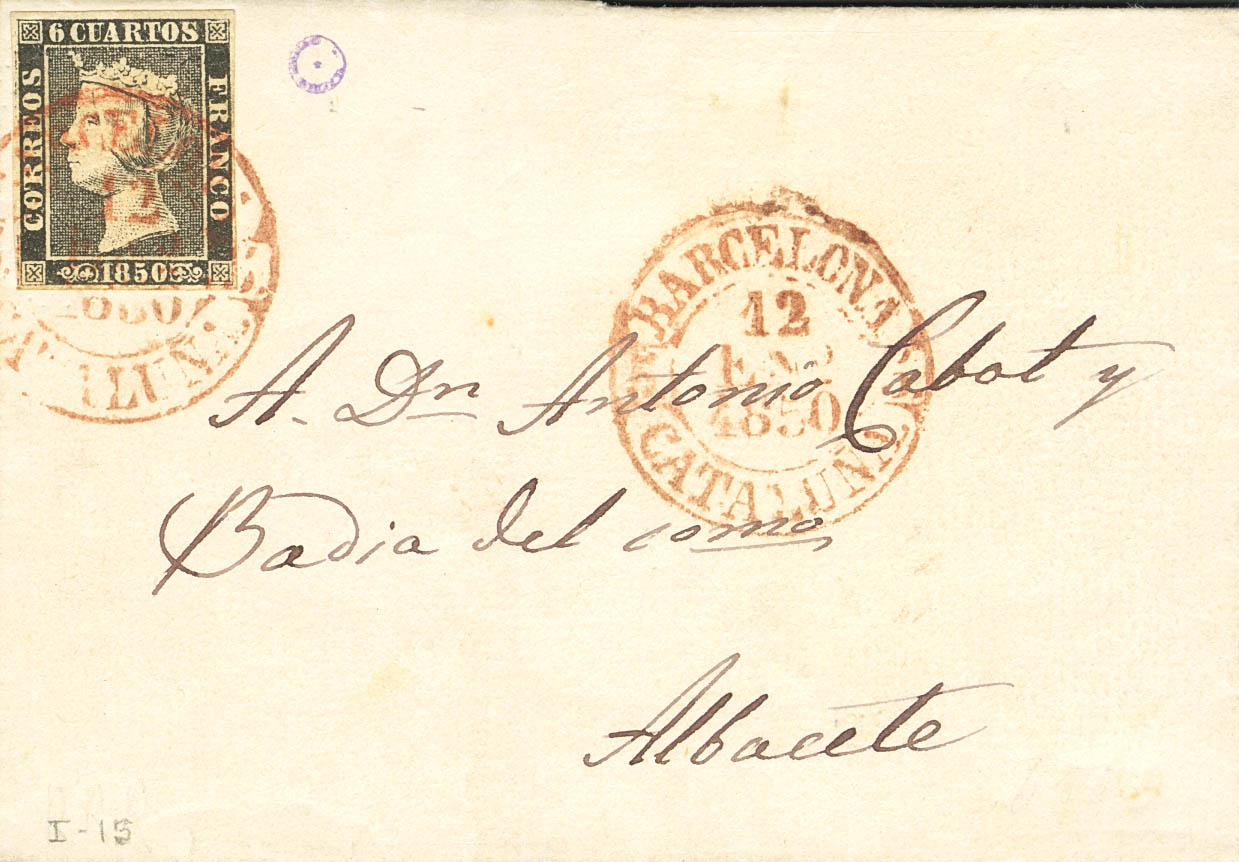 6 CUARTOS
CORREOS
FRANCO
1850
BARCELONA
12
ENO
1850
CATALUÑA
A. Dn Antonio Cabot y
Badia del comº
Albacete
I-15